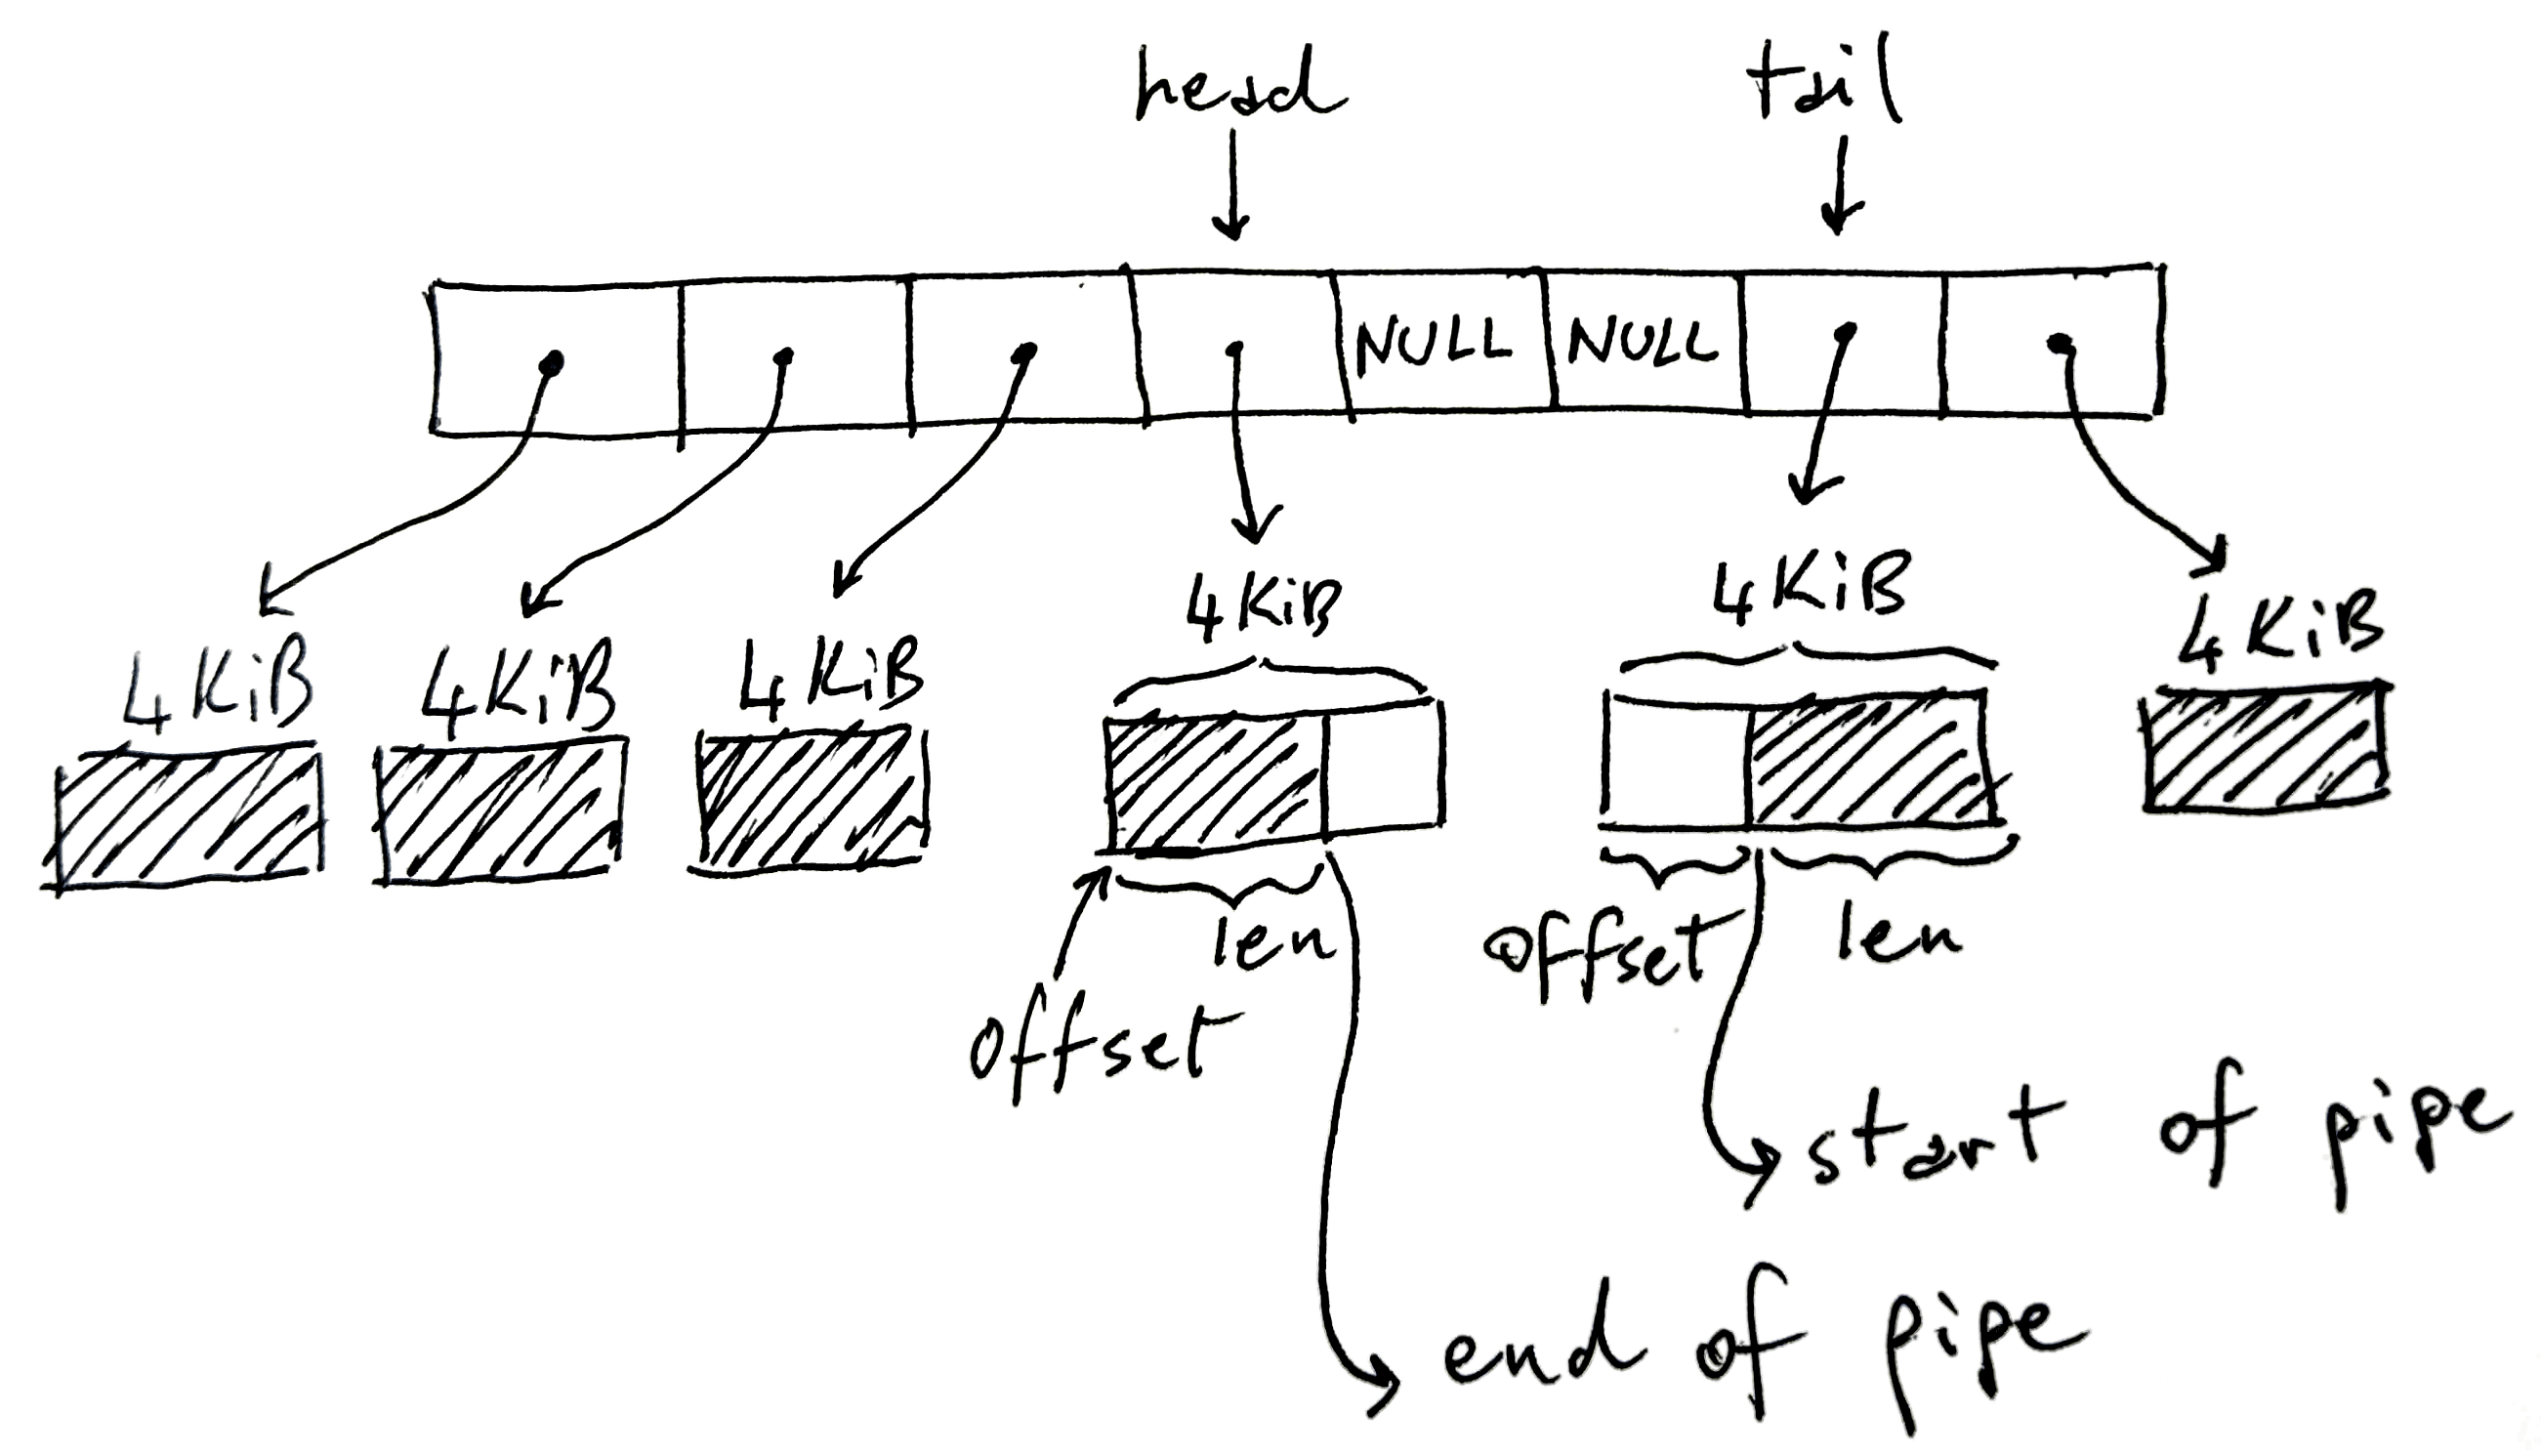 head
tail
NULL
NULL
4KiB
4KiB
4KiB
4KiB
4KiB
4KiB
len
offset
offset
len
start of pipe
end of pipe